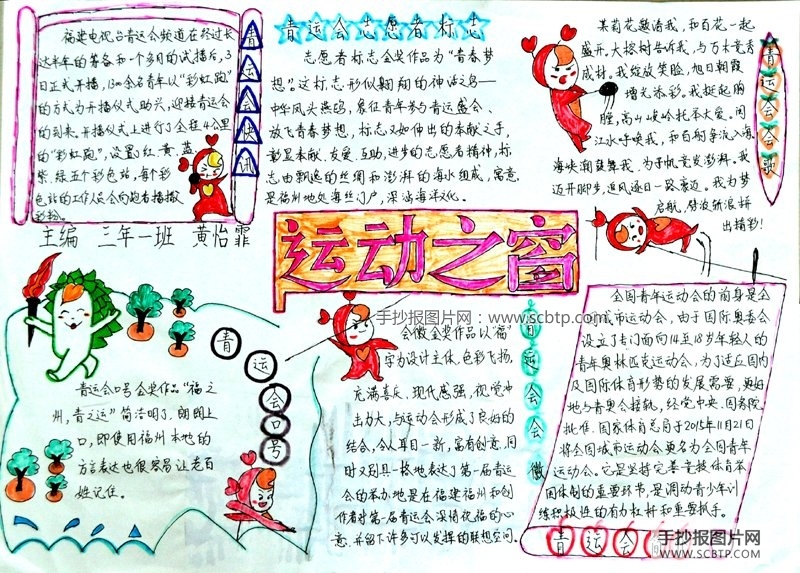 福建电视台青运会频道在经过长
达半年的筹备和一个多月的试播后,3
日正式开播,1300余名青年以“彩虹跑”
的方式为开播仪式助兴,迎接青运会
的到来。开播仪式上进行了全程4公里
的“彩虹跑”,设置了红、黄、蓝
紫、绿五个彩色站。每个彩
色站的工作人员会向跑者播撒
彩粉。
青运会快讯
主编 三年一班 黄怡霏
青运会志愿者标志
志愿者标志金奖作品为“青春梦
想”。这标志形似翱翔的神话之鸟—
中华凤头燕鸥,象征青年参与青运盛会、
放飞青春梦想,标志又如伸出的奉献之手,
彰显奉献、友爱、互助、进步的志愿者精神,标
志由飘逸的丝绸和澎湃的海水组成,寓意
是福州地处海丝门户,深涵海洋文化。
茉莉花邀请我,和百花一起
盛开。大榕树告诉我,与万木竞秀
成林。我绽放笑脸,旭日朝霞
增光添彩。我挺起胸
膛,高山峻岭托举大爱。闽
江水呼唤我,和百船争流入海。
海峡潮鼓舞我,为千帆竞发澎湃。我
迈开脚步,追风逐日一路豪迈。我为梦
启航,劈波斩浪拼
出精彩!
青运会会歌
运动之窗
手抄报图片网
www.scbtp.com
青运会口号金奖作品“福之
州,青之运”简洁明了,朗朗上
口,即使用福州本地的
方言表达也很容易让老百
姓记住。
青运会口号
会徽金奖作品以“福”
字为设计主体,色彩飞扬,
充满喜庆、现代感强,视觉冲
击力大,与运动会形成了良好的
结合,令人耳目一新,富有创意,同
时又别具一格地表达了第一届青运
会的举办地是在福建福州和创
作者对第一届青运会深情祝福的心
意,并留下许多可以发挥的联想空间。
青运会会徽
全国青年运动会的前身是全
国城市运动会,由于国际奥委会
设立了专门面向14至18岁年轻人的
青年奥林匹克运动会,为了适应国内
及国际体育形势的发展需要,更好
地与青奥会接轨,经党中央、国务院
批准,国家体育总局于2013年11月21日
将全国城市运动会更名为全国青年
运动会。它是坚持完善竞技体育举
国体制的重要环节,是调动青少年训
练积极性的有力杠杆和重要抓手。
青运会
手抄报图片网
WWW.SCBTP.COM